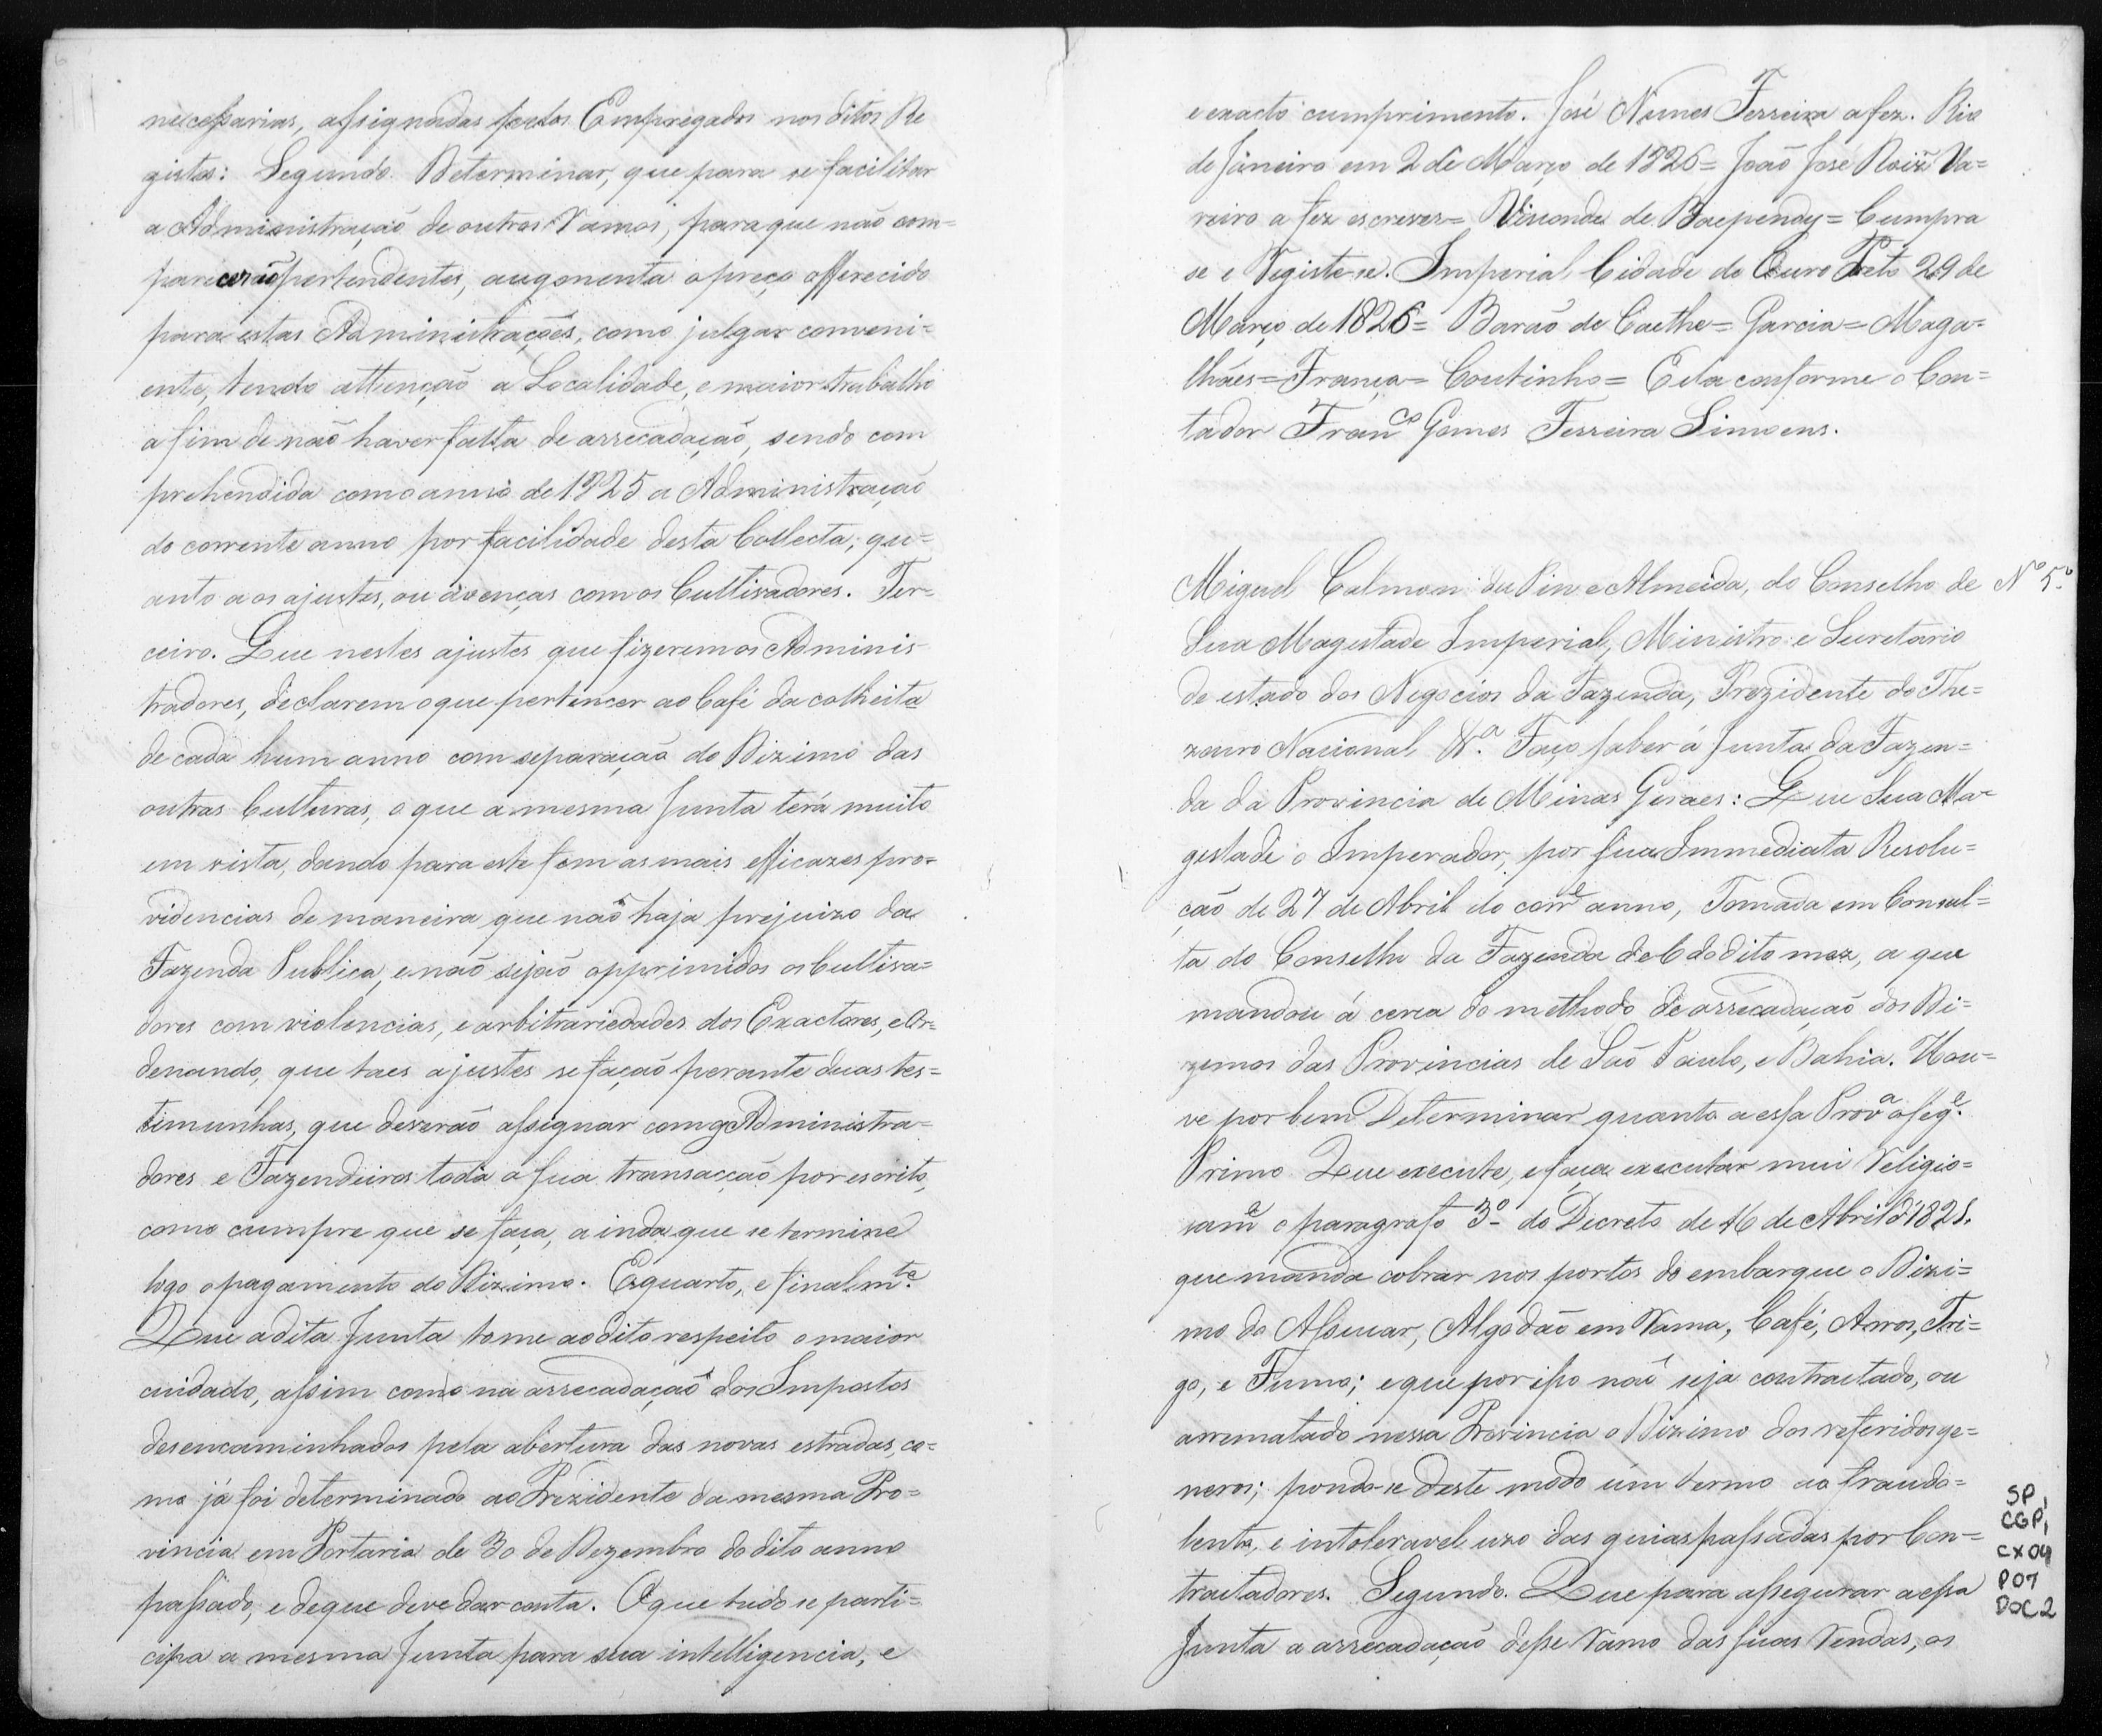 necessarias, assignadas pelos Empregados nos ditos Re
gistos: Segundo Determinar, que para se facilitar
a Administração de outros Ramos, para que não com=
pareceraõ pertendentes, augmenta o preço offerecido
para estas Administrações, como julgar conveni=
ente, tendo attenção a Localidade, e maior trabalho
a fim de naõ haver falta de arrecadaçaõ, sendo com
prehendida com o anno de 1825 a Administraçaõ
do corrente anno por facilidade desta Collecta; qu=
anto a os ajustes, ou avenças com os Cultivadores. Ter=
ceiro. Que nestes ajustes que fizerem os Adminis=
tradores, declarem o que pertencer ao Café da colheita
de cada hum anno com separaçaõ do Dizimo das
outras Culturas, o que a mesma Junta terá muito
em vista, dando para este fim as mais efficazes pro=
videncias de maneira que naõ haja prejuizo da
Fazenda Publica, e naõ sejaõ opprimidos os Cultiva=
dores com violencias, e arbitrariedades dos Exactores, e Or=
denando, que taes ajustes se façaõ perante duas tes=
timunhas, que deveraõ assignar com os Administra=
dores e Fazendeiros toda a sua transacção por escrito,
como cumpre que se faça, a inda que se termine
logo o pagamento do Dizimo. E quarto, e finalmte.
Que a dita Junta tome ao dito respeito o maior
cuidado, assim como na arrecadaçaõ dos Impostos
desencaminhados pela abertura das novas estradas, co=
mo já foi determinado ao Prezidente da mesma Pro=
vincia em Portaria de 30 de Dezembro do dito anno
passado, e de que deve dar conta. O que tudo se parti=
cipa a mesma Junta para sua intelligencia, e
e exacto cumprimento. José Nunes Ferreira a fez. Rio
de Janeiro em 2 de Março de 1826= João José Roiz Va=
reiro a fez escrever= Visconde de Baependy= Cumpra
se e Registe-se. Imperial Cidade do Ouro Preto 29 de
Março de 1826= Barão de Caethe= Garcia= Maga=
lhães= França= Coutinho= Está conforme o Con=
tador Franco Gomes Ferreira Simoens.
Miguel Calmon du Pin e Almeida, do Conselho de Nº 5º
Sua Magestade Imperial, Ministro e Secretario
de estado dos Negocios da Fazenda, Prezidente do The=
zouro Nacional &a. Faço saber á Junta da Fazen=
da da Provincia de Minas Geraes: Que Sua Ma=
gestade o Imperador, por sua Immediata Resolu=
ção de 27 de Abril do corre anno, Tomada em Consul=
ta do Conselho da Fazenda de 6 do dito mez, a que
mandou á cerca do methodo de arrecadaçaõ dos Di=
zimos das Provincias de São Paulo, e Bahia. Hou=
ve por bem Determinar quanto a essa Prova o sege.
Primo Que execute, e faça executar mui religio=
same o paragrafo 3º do Decreto de 16 de Abril d'1821.
que manda cobrar nos portos do embarque o Dizi=
mo do Assucar, Algodão em Rama, Café, Arros, Tri=
go, e Fumo; e que por isso naõ seja contractado, ou
arrematado nessa Provincia o Dizimo dos referidos ge=
neros; pondo-se deste modo um termo ao fraudo=
lento, e intoleravel uzo das guias passadas por Con=
tractadores. Segundo. Que para assegurar a essa
Junta a arrecadaçaõ desse Ramo das suas Rendas, os
SP,
CGP,
CX04
P07
DOC2